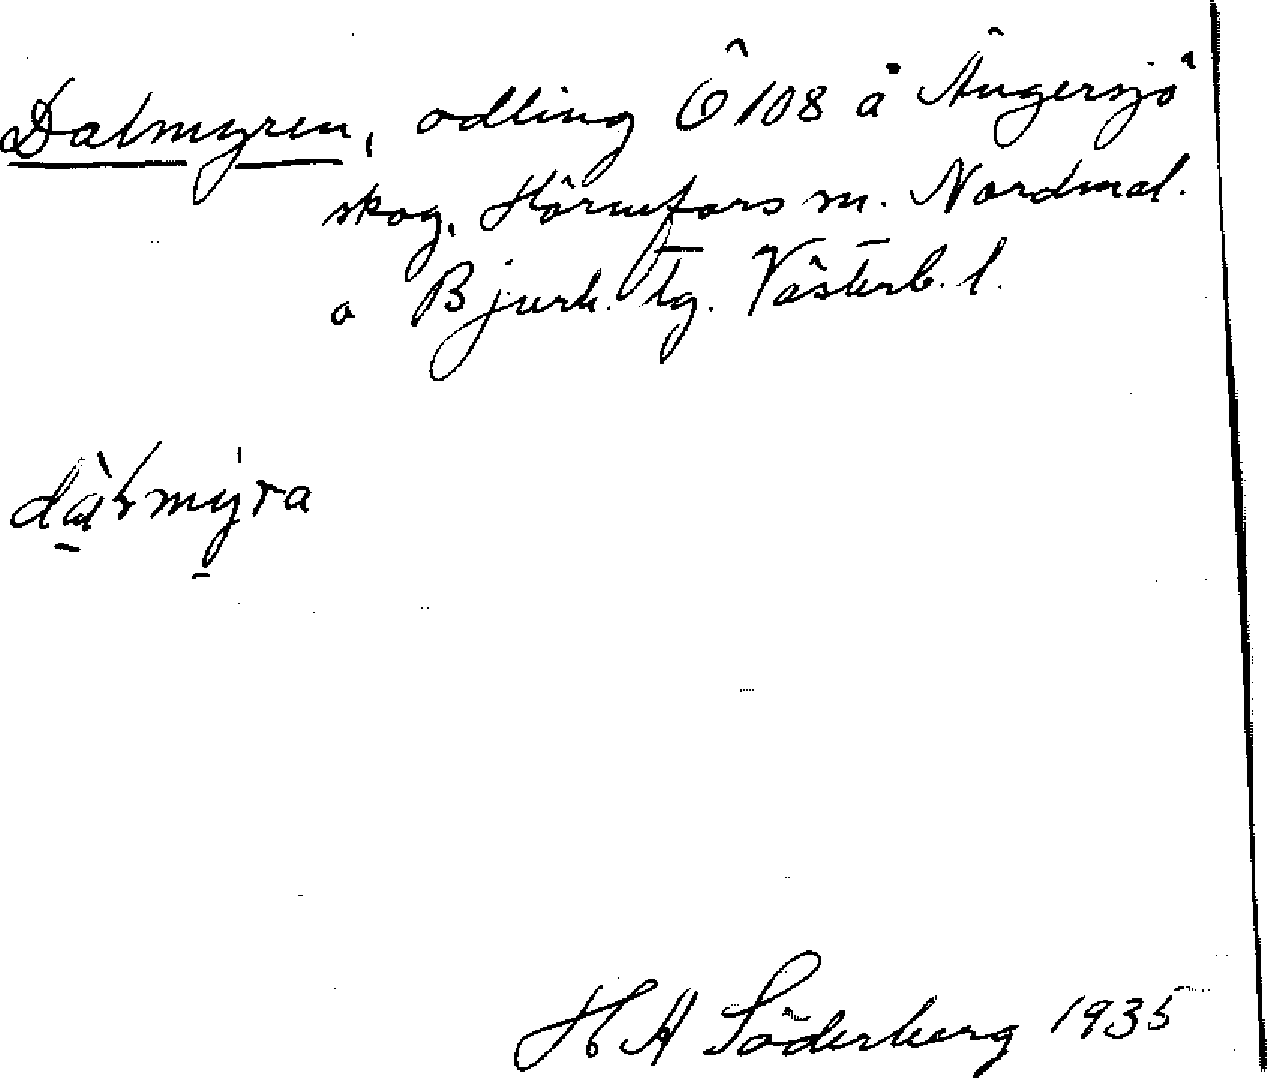 Dalmyren, odling Ö 108 å Ängersjö
skog, Hörnefors sn. Nordmal.
o Bjurh. tg. Västerb. l.
dàlmýra
H A Söderberg 1935